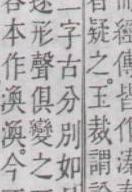 而經傳皆作
者疑之玉裁謂
二字古分別如
遂形聲俱變之
各本作渙渙今